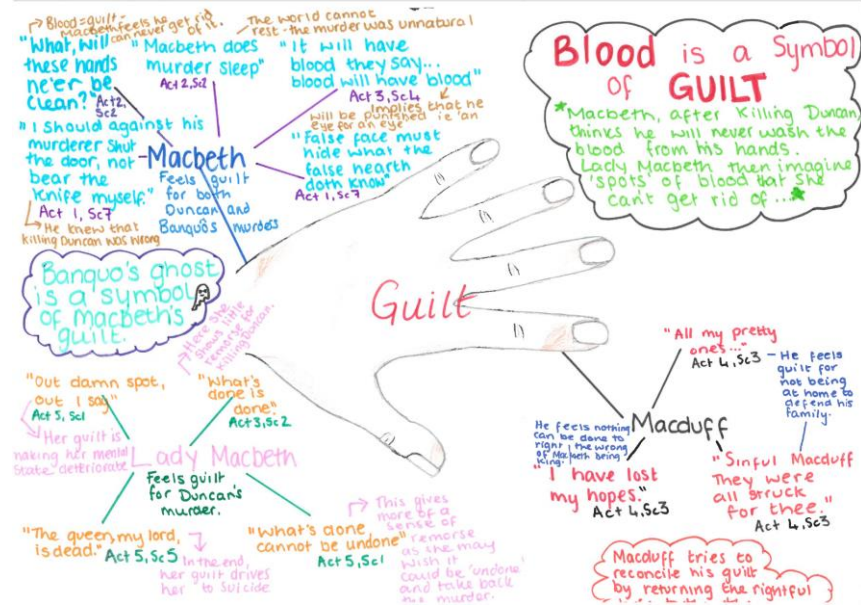 Blood=guilt-
Macbeth feels he can never get rid
of it.
"What, will
these hands
ne'er be
clean?"
Act 2,
Sc2
The world cannot
rest - the murder was unnatural
"Macbeth does
murder sleep"
Act 2, Sc2
"It will have
blood they say...
blood will have blood"
Act 3, Sc4
Implies that he
will be punished ie 'an
eye for an eye
"I should against his
murderer shut
the door, not
bear the
Knife myself."
Act 1, Sc7
He knew that
killing Duncan was wrong
Macbeth
Feels guilt
for both
Duncan and
Banquo's murders
"False face must
hide what the
false hearth
doth know"
Act 1, Sc7
Blood is a Symbol
of GUILT
*Macbeth, after killing Duncan
thinks he will never wash the
blood from his hands.
Lady Macbeth then imagine
'spots' of blood that she
can't get rid of ...*
Banquo's ghost
is a symbol
of Macbeth's
guilt.
Guilt
Here she
shows little
remorse for
killing Duncan.
"Out damn spot,
out I say"
Act 5, Sc1
Her guilt is
making her mental
state deteriorate
"What's
done is
done."
Act 3, Sc2
Lady Macbeth
Feels guilt
for Duncan's
murder.
"The queen, my lord,
is dead." Act 5, Sc5
In the end,
her guilt drives
her to suicide
"What's done,
cannot be undone"
Act 5, Sc1
This gives
more of a
sense of
remorse
as she may
wish it
could be 'undone'
and take back
the murder.
"All my pretty
ones..."
Act 4, Sc3
He feels
guilt for
not being
at home to
defend his
family.
Macduff
He feels nothing
can be done to
right the wrong
of Macbeth being
King.
"I have lost
my hopes."
Act 4, Sc3
"Sinful Macduff
They were
all struck
for thee."
Act 4, Sc3
Macduff tries to
reconcile his guilt
by returning the rightful